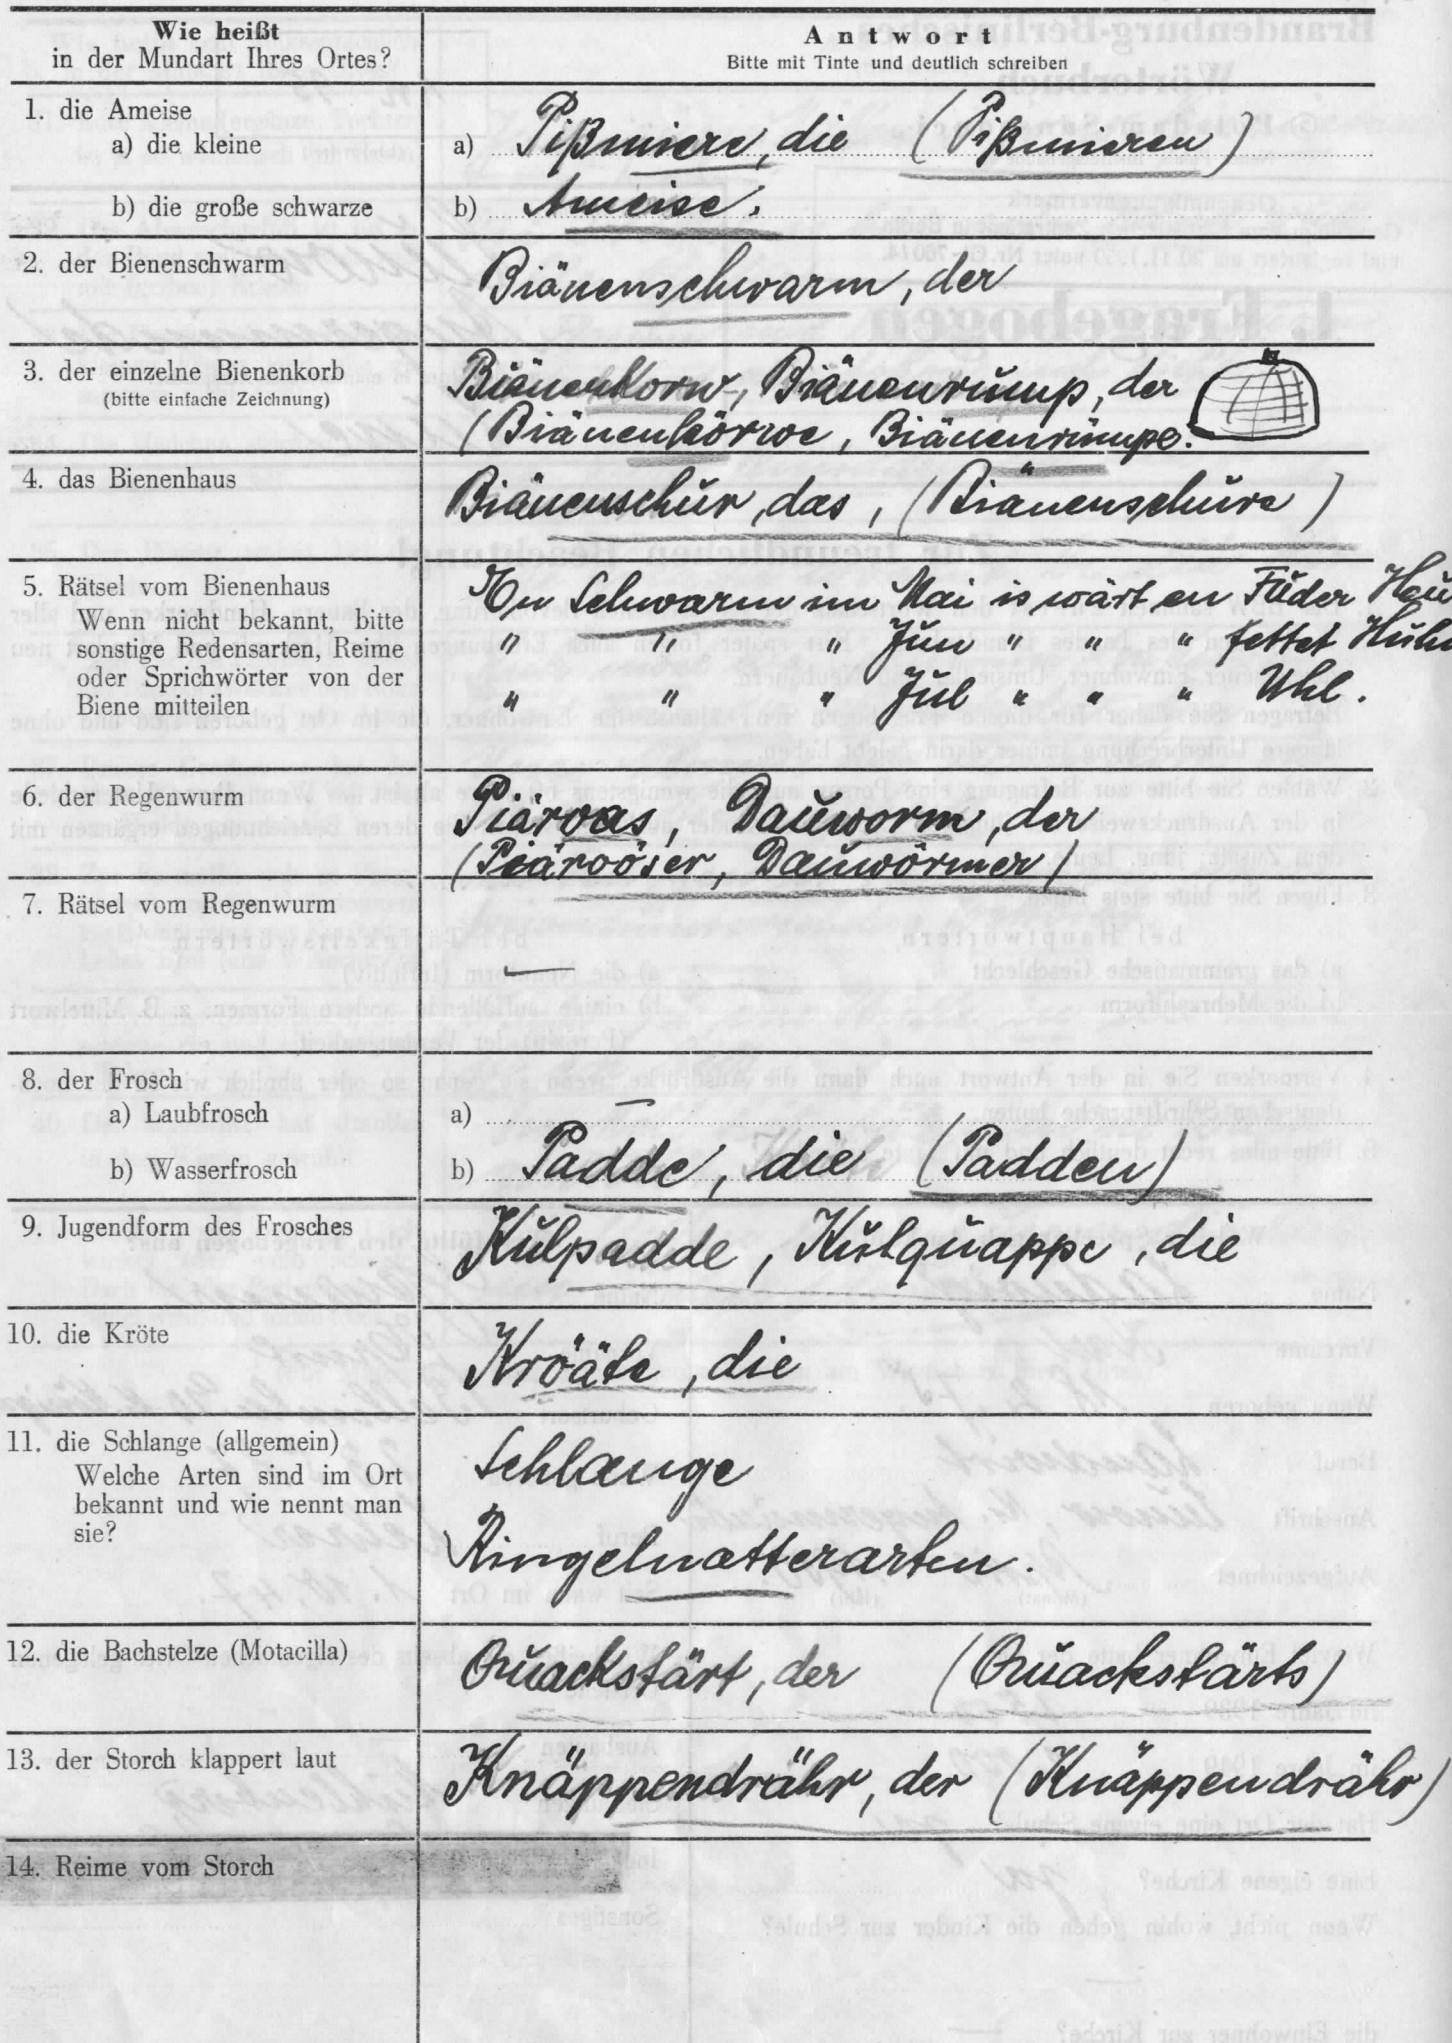 Wie heißt
in der Mundart Ihres Ortes?
Antwort
Bitte mit Tinte und deutlich schreiben
1. die Ameise
a) die kleine
a) Pißmiere, die (Pißmieren)
b) die große schwarze
b) Ameise.
2. der Bienenschwarm
Biänenschwarm, der
3. der einzelne Bienenkorb
(bitte einfache Zeichnung)
Biänenkorw, Biänenrump, der
(Biänenkörwe, Biänenrümpe.
4. das Bienenhaus
Biänenschur, das, (Biänenschure)
5. Rätsel vom Bienenhaus
Wenn nicht bekannt, bitte
sonstige Redensarten, Reime
oder Sprichwörter von der
Biene mitteilen
En Schwarm im Mai is wärt en Fuder Heu
" " " Jun " " " fettet Huhn
" " " Jul " " " Uhl.
6. der Regenwurm
Piäroas, Dauworm, der
(Piäroöser, Dauwörmer)
7. Rätsel vom Regenwurm
—
8. der Frosch
a) Laubfrosch
a) —
b) Wasserfrosch
b) Padde, die (Padden)
9. Jugendform des Frosches
Kulpadde, Kulquappe, die
10. die Kröte
Kröäte, die
11. die Schlange (allgemein)
Welche Arten sind im Ort
bekannt und wie nennt man
sie?
Schlange
Ringelnatterarten.
12. die Bachstelze (Motacilla)
Quackstärt, der (Quackstärts)
13. der Storch klappert laut
Knäppendrähr, der (Knäppendrähr)
14. Reime vom Storch